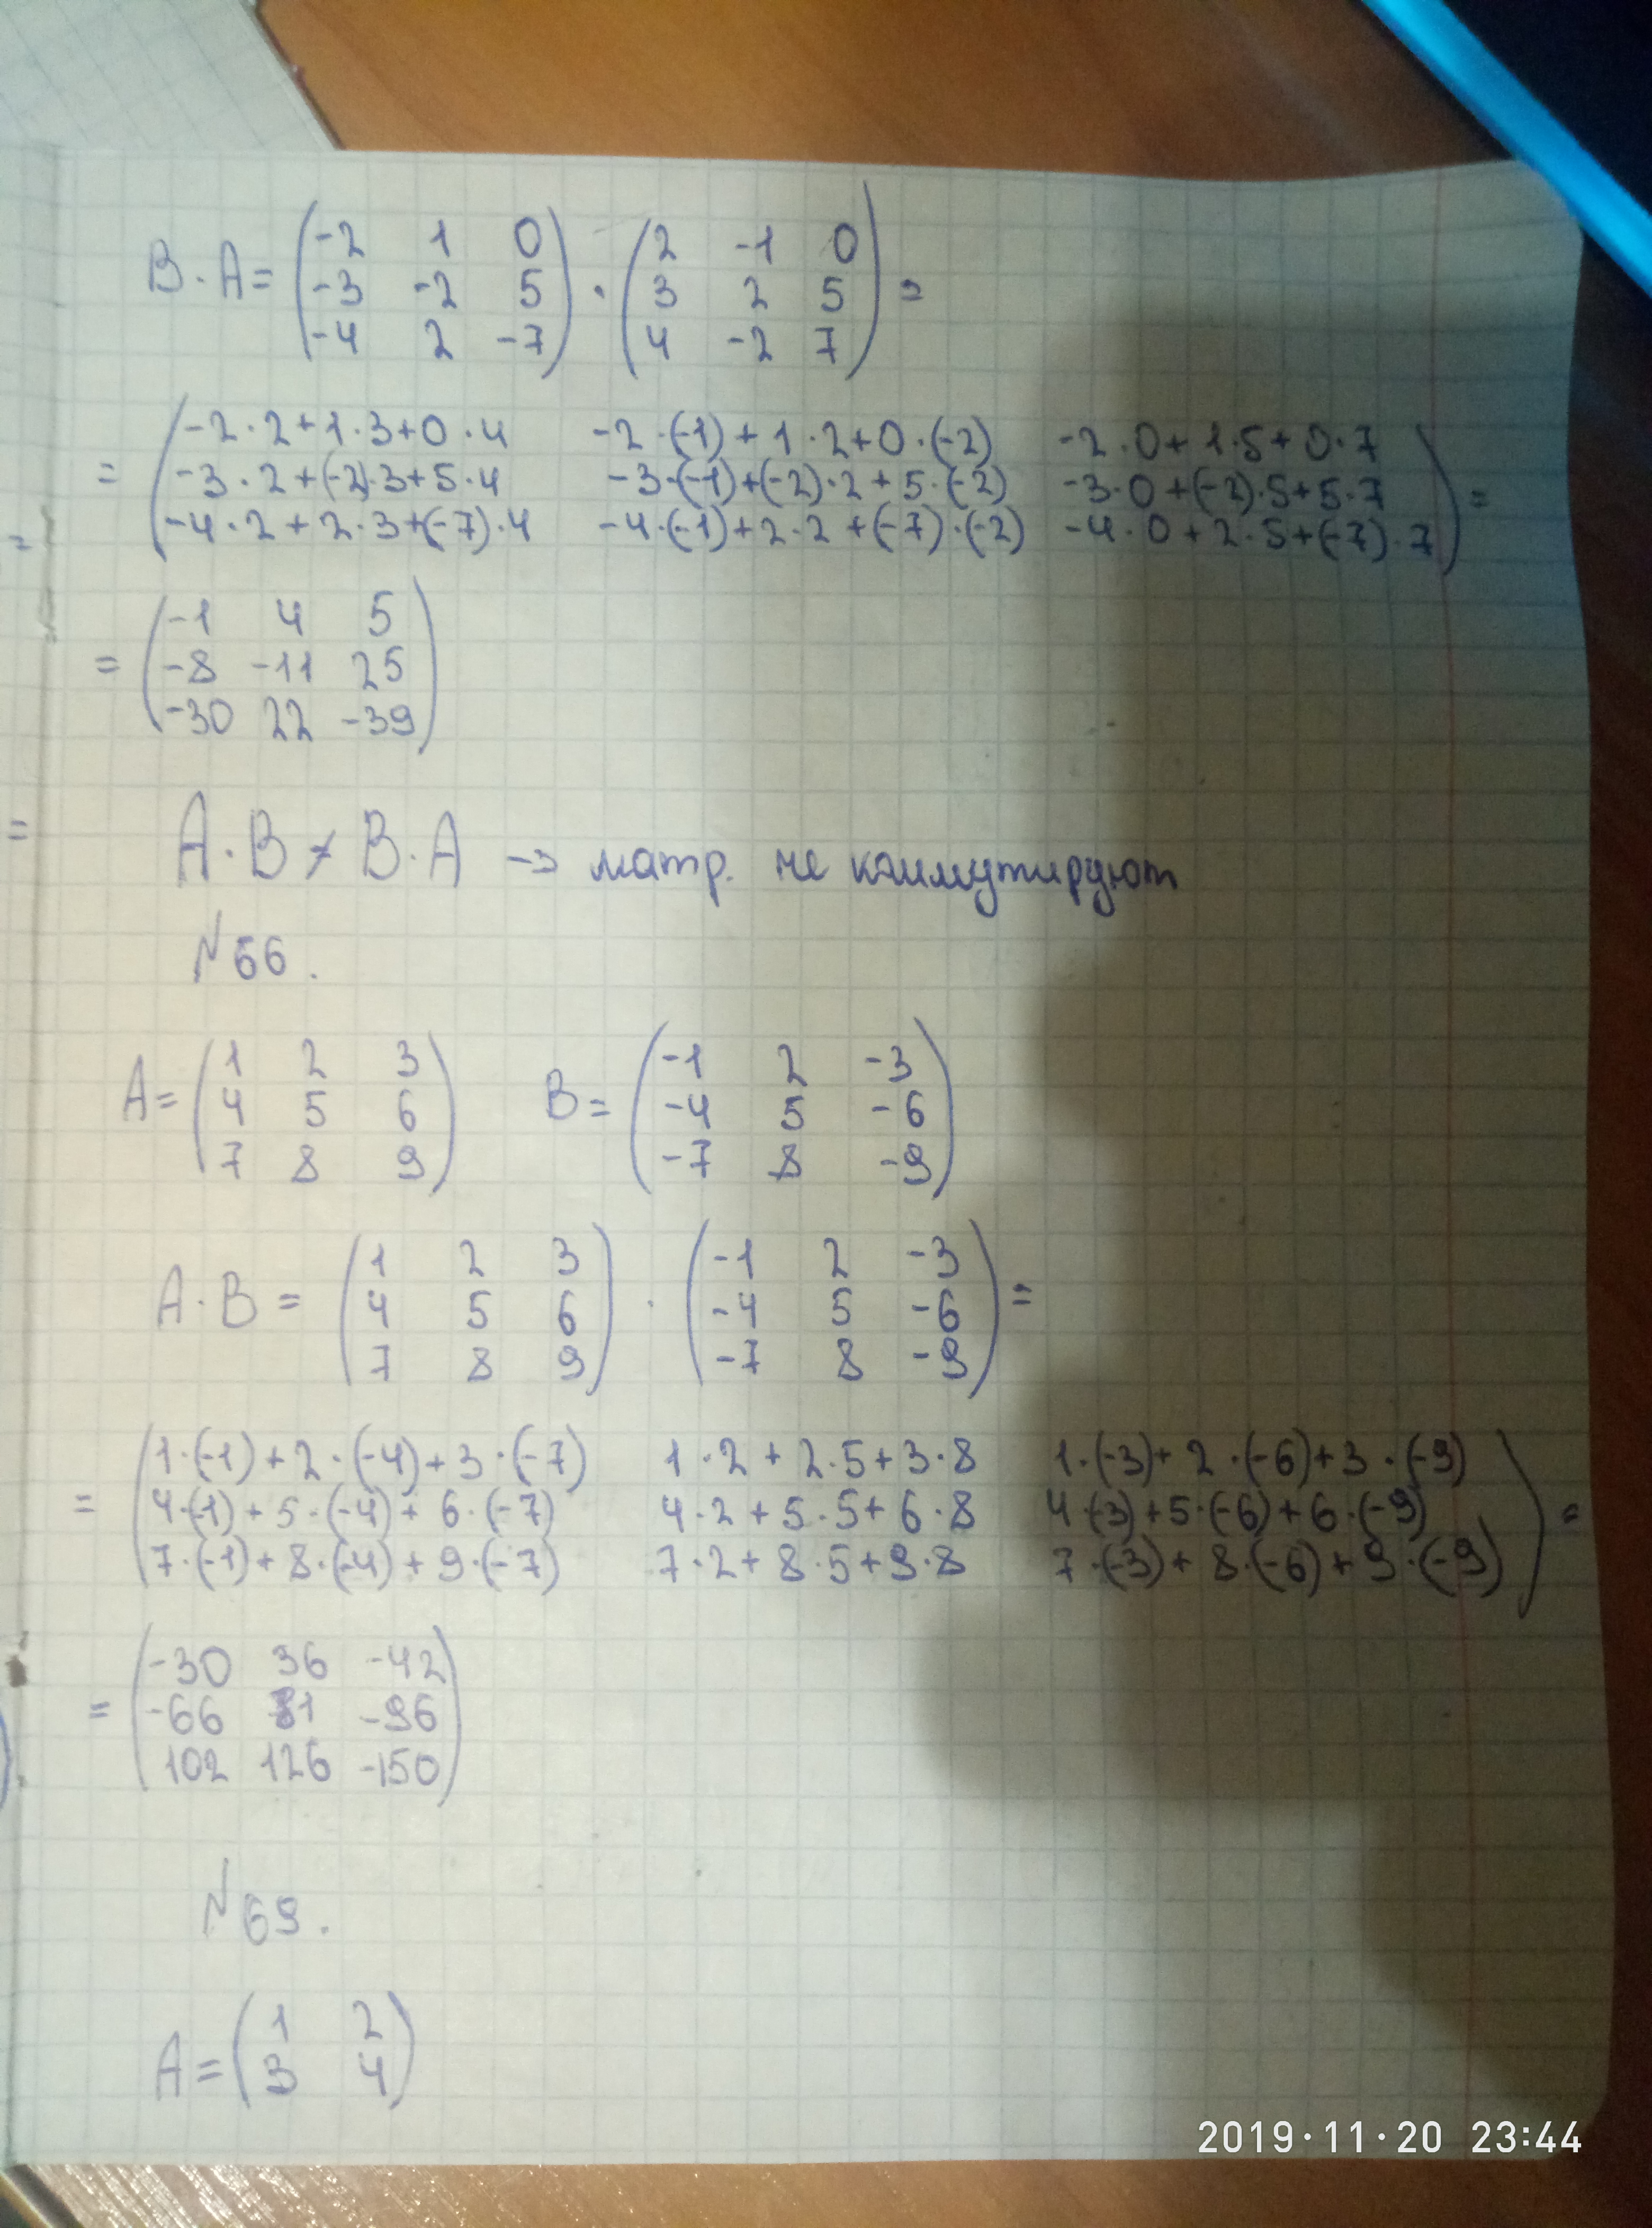 B·A= (-2 1 0) · (2 -1 0) =
(-3 -2 5) (3 2 5)
(-4 2 -7) (4 -2 7)
= (-2·2+1·3+0·4 -2·(-1)+1·2+0·(-2) -2·0+1·5+0·7) =
(-3·2+(-2)·3+5·4 -3·(-1)+(-2)·2+5·(-2) -3·0+(-2)·5+5·7)
= (-4·2+2·3+(-7)·4 -4·(-1)+2·2+(-7)·(-2) -4·0+2·5+(-7)·7)
= (-1 4 5)
(-8 -11 25)
(-30 22 -39)
= A·B ≠ B·A → матр. не коммутируют
№66.
A= (1 2 3) B= (-1 2 -3)
(4 5 6) (-4 5 -6)
(7 8 9) (-7 8 -9)
A·B = (1 2 3) · (-1 2 -3) =
(4 5 6) (-4 5 -6)
(7 8 9) (-7 8 -9)
= (1·(-1)+2·(-4)+3·(-7) 1·2+2·5+3·8 1·(-3)+2·(-6)+3·(-9)) =
(4·(-1)+5·(-4)+6·(-7) 4·2+5·5+6·8 4·(-3)+5·(-6)+6·(-9))
(7·(-1)+8·(-4)+9·(-7) 7·2+8·5+9·8 7·(-3)+8·(-6)+9·(-9))
= (-30 36 -42)
(-66 81 -96)
(102 126 -150)
№69.
A= (1 2)
(3 4)
2019·11·20 23:44